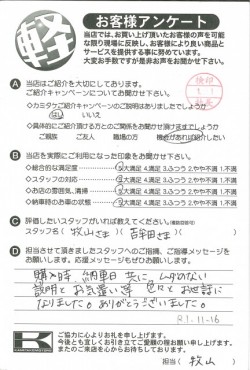 軽
お客様アンケート
当店では、お買い上げ頂いたお客様の声を可能
な限り現場に反映し、お客様により良い商品と
サービスを提供する事に努めています。
大変お手数ですが是非お声をお聞かせ下さい。
A 当店はご紹介を大切にしております。
ご紹介キャンペーンについてお聞かせ下さい。
◇カミタケご紹介キャンペーンのご説明はありましたでしょうか
はい いいえ
◇具体的にご紹介頂ける方とのご関係をお聞かせ頂けますでしょうか
ご親族 ご友人 職場の方 ご近所の方
B 当店を実際にご利用になった印象をお聞かせ下さい。
◇総合的な満足度 5.大満足 4.満足 3.ふつう 2.やや不満 1.不満
◇スタッフの対応 5.大満足 4.満足 3.ふつう 2.やや不満 1.不満
◇お店の雰囲気、清掃 5.大満足 4.満足 3.ふつう 2.やや不満 1.不満
◇納車時のお車の状態 5.大満足 4.満足 3.ふつう 2.やや不満 1.不満
C 評価したいスタッフがいれば教えてください。
スタッフ名( 牧山さま )( 吉田さま )
D 担当させて頂きましたスタッフへのご指摘、ご指導メッセージを
お願いします。応援メッセージもぜひお願いします。
購入時、納車日共に、ムダのない
説明とお気遣い等 色々とお世話に
なりました。ありがとうございました。
R1-11-16
ご協力に心よりお礼を申し上げます。
今後とも宜しくお引き立てご愛顧の程お願い申し上げます。
またのご来店を心からお待ちしております。
担当( 牧山 )